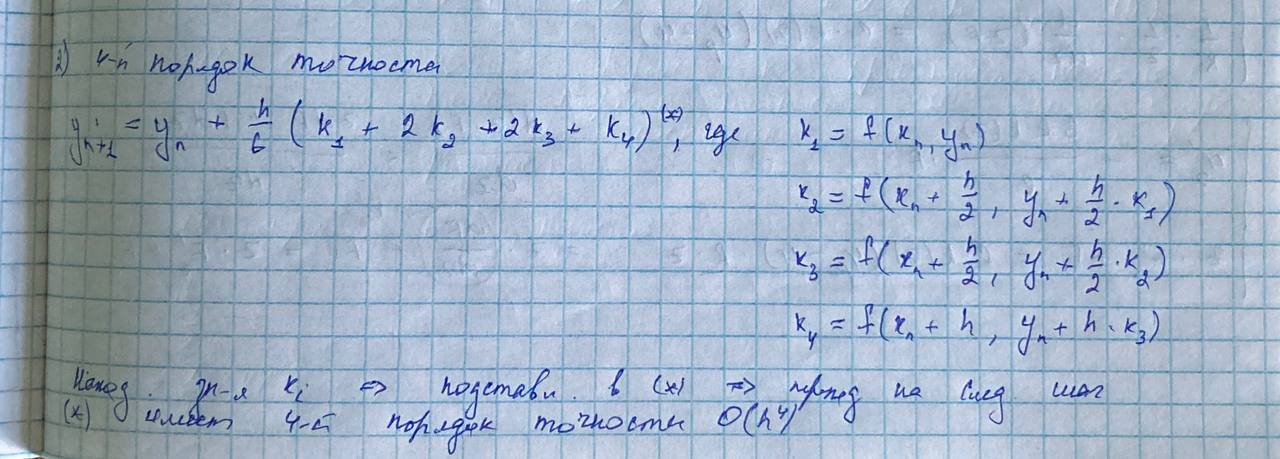 2) 4-й порядок точности
y_{n+1} = y_n + h/6 (k_1 + 2k_2 + 2k_3 + k_4) (x), где k_1 = f(x_n, y_n)
k_2 = f(x_n + h/2, y_n + h/2 · k_1)
k_3 = f(x_n + h/2, y_n + h/2 · k_2)
k_4 = f(x_n + h, y_n + h · k_3)
Наход. зн-я k_i => подставл. в (x) => переход на след шаг
(x) имеет 4-й порядок точности O(h^4)